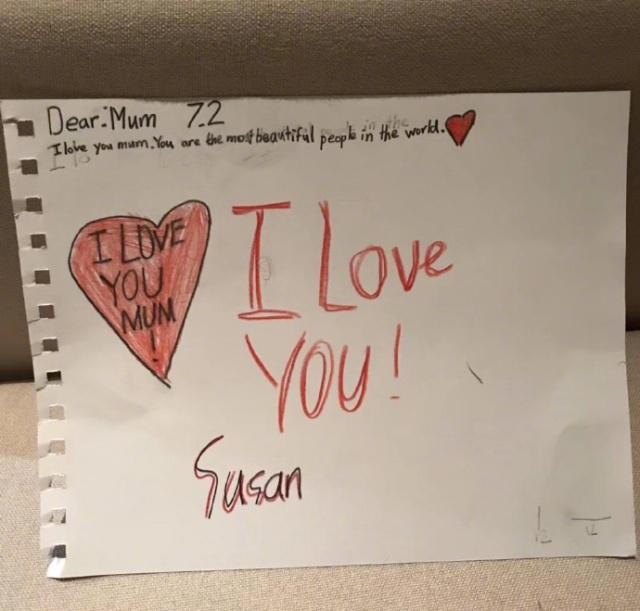 Dear:Mum 7.2
I love you mum. You are the most beautiful people in the world.
I LOVE
YOU
MUM
!
I Love
YOU!
Susan
12
12